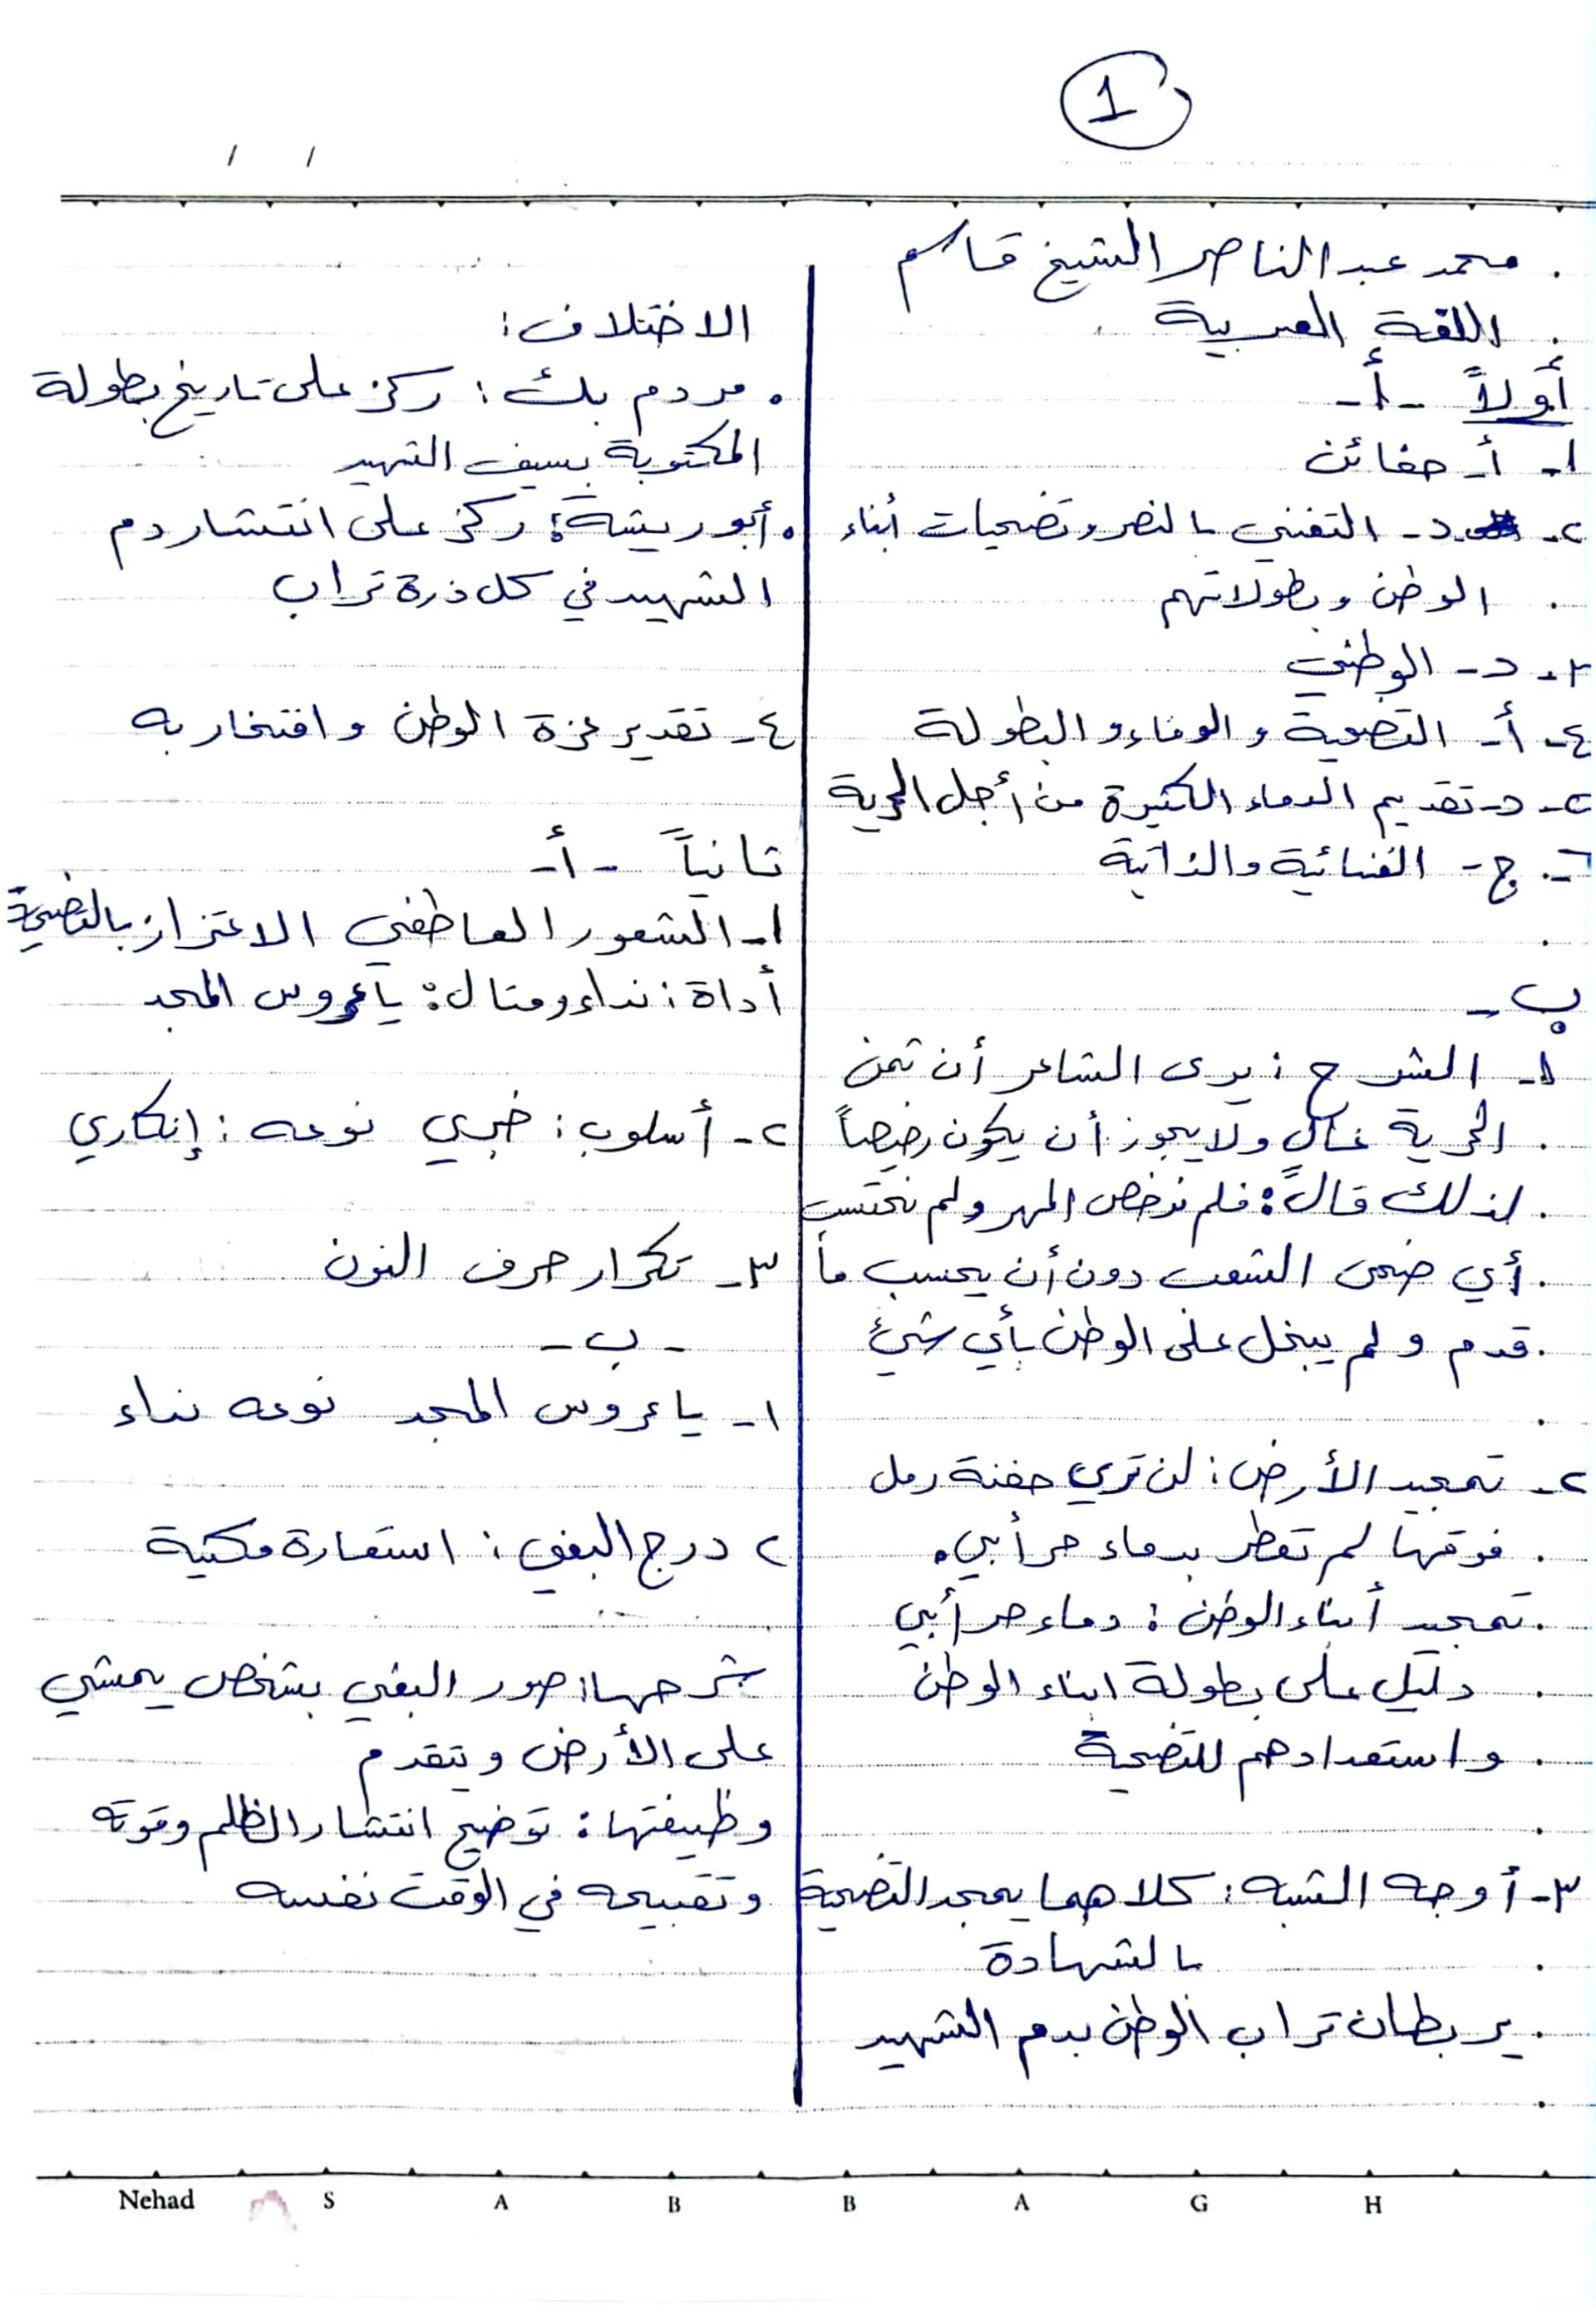 1
/ /
محمد عبد الناصر الشيخ قاسم
اللغة العربية
أولاً - أ -
١- أ- ضغائن
٢- د- التغني بالنصر وتضحيات أبناء
الوطن وبطولاتهم
٣- د- الوطني
٤- أ- التضحية والوفاء والبطولة
٥- د- تقديم الدماء الكثيرة من أجل الحرية
٦- ج- الغنائية والذاتية
ب-
١- الشرح : يرى الشاعر أن ثمن
الحرية غالٍ ولا يجوز أن يكون رخيصاً
لذلك قال : فلم نرخص المهر ولم نحتسب
أي ضحى الشعب دون أن يحسب ما
قدم ولم يبخل على الوطن بأي شيئ
٢- تمجيد الأرض : لن تري حفنة رمل
فوقها لم تعطر بدماء حر أبي.
تمجيد أبناء الوطن : دماء حر أبي
دليل على بطولة ابناء الوطن
واستعدادهم للتضحية
٣- أوجه الشبه : كلاهما يمجد التضحية
بالشهادة
يربطان تراب الوطن بدم الشهيد
الاختلاف :
. مردم بك : ركز على تاريخ بطولة
المكتوبة بسيف الشهيد
. أبو ريشة : ركز على انتشار دم
الشهيد في كل ذرة تراب
٤- تقدير عزة الوطن وافتخار به
ثانياً - أ-
١- الشعور العاطفي الاعتزاز بالتضحية
أداة : نداء ومثال : يا عروس المجد
٢- أسلوب : خبري نوعه : إنكاري
٣- تكرار حرف النون
- ب -
١- يا عروس المجد نوعه نداء
٢ درج البغي : استعارة مكنية
شرحها : صور البغي بشخص يمشي
على الأرض ويتقدم
وظيفتها : توضيح انتشار الظلم وقوته
وتقبيحه في الوقت نفسه
Nehad S A B B A G H